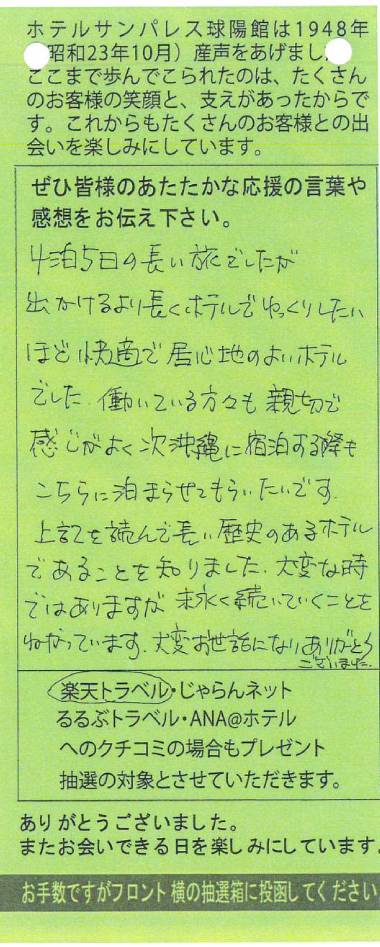 ホテルサンパレス球陽館は1948年
昭和23年10月）産声をあげまし
ここまで歩んでこられたのは、たくさん
のお客様の笑顔と、支えがあったからで
す。これからもたくさんのお客様との出
会いを楽しみにしています。
ぜひ皆様のあたたかな応援の言葉や
感想をお伝え下さい。
4泊5日の長い旅でしたが
出かけるより長くホテルでゆっくりしたい
ほど快適で居心地のよいホテル
でした。働いている方々も親切で
感じがよく次沖縄に宿泊する際も
こちらに泊まらせてもらいたいです。
上記を読んで長い歴史のあるホテル
であることを知りました。大変な時
ではありますが末永く続いていくことを
ねがっています。大変お世話になりありがとう
ございました。
楽天トラベル・じゃらんネット
るるぶトラベル・ANA@ホテル
へのクチコミの場合もプレゼント
抽選の対象とさせていただきます。
ありがとうございました。
またお会いできる日を楽しみにしています。
お手数ですがフロント横の抽選箱に投函してください